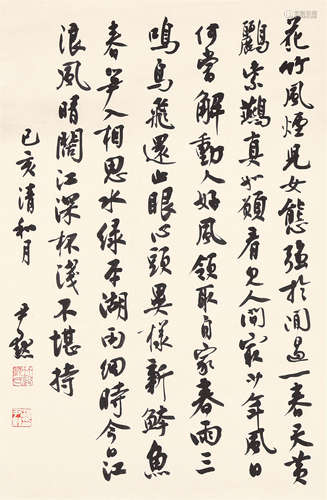 花竹風煙兒女態強於閒過一春天黃
鸝紫鷰真如願看見人間最少年風日
何曾解動人好風領取自家春雨三
鳴鳥飛還止眼心頭異樣新鰣魚
春笋入相思水綠平湖雨細時今日江
浪風晴闊江深杯淺不堪持
己亥清和月
尹默